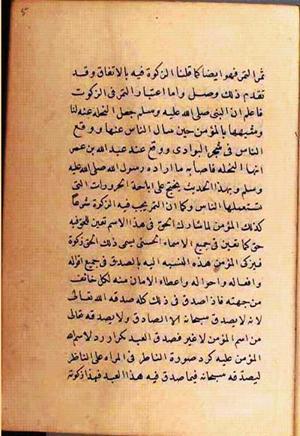 ثمرا لتمر فهو ايضا كما قلنا الزكوة فيه بالاتفاق وقد
تقدم ذلك وصل واما اعتبار التمر في الزكوة
فاعلم ان النبى صلى الله عليه وسلم جعل النخلة عمة لنا
وشبهها بالمؤمن حين سال الناس عنها ووقع
الناس في شجر البوادى ووقع عند عبد الله بن عمر
انها النخلة فاصاب ما اراده رسول الله صلى الله عليه
وسلم وبهذا الحديث يحتج على اباحة الحزورات التى
تستعملها الناس وكما ان التمر يجب فيه الزكوة شرعا
كذلك المؤمن لما شارك الحق في هذا الاسم تعين للحق فيه
حق كما تعين في جميع الاسماء الحسنى يسمى ذلك الحق زكوة
فيزكى المؤمن هذه النسبة اليه بالصدق في جميع اقواله
وافعاله واحواله واعطاء الامان منه لكل خائف
من جهته فاذا صدق في ذلك كله صدقه الله تعالى
لانه لا يصدق سبحانه الا الصادق ولا يصدقه تعالى
من اسمه المؤمن لا غير فصدق العبد رد لاسم الله
المؤمن عليه كرد صورة الناظر في المراة على الناظر
ليصدقه سبحانه فيما صدق فيه هذا العبد فهذا زكوته